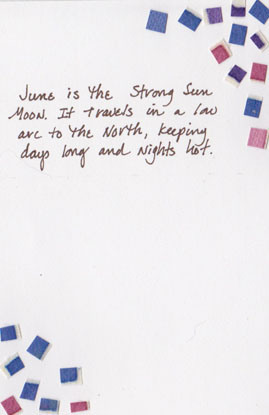 June is the Strong Sun
Moon. It travels in a low
arc to the North, keeping
days long and nights hot.